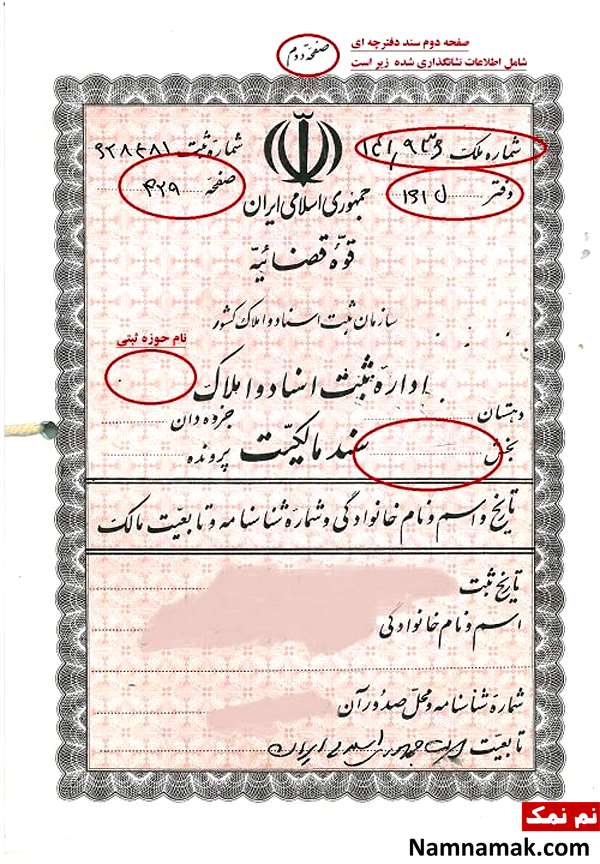 صفحه دوم سند دفترچه ای
شامل اطلاعات نشانگذاری شده زیر است
صفحه دوم
شماره ملک
شماره ثبت
دفتر
صفحه ۴۲۹
جمهوری اسلامی ایران
قوّهٔ قضائیّه
سازمان ثبت اسناد و املاک کشور
نام حوزه ثبتی
ادارهٔ ثبت اسناد و املاک
دهستان
جزوه دان
بخش
سند مالکیّت
پرونده
تاریخ و اسم و نام خانوادگی و شمارهٔ شناسنامه و تابعیّت مالک
تاریخ ثبت
اسم و نام خانوادگی
شمارهٔ شناسنامه و محلّ صدور آن
تابعیّت دولت جمهوری اسلامی ایران
نم نمک
Namnamak.com